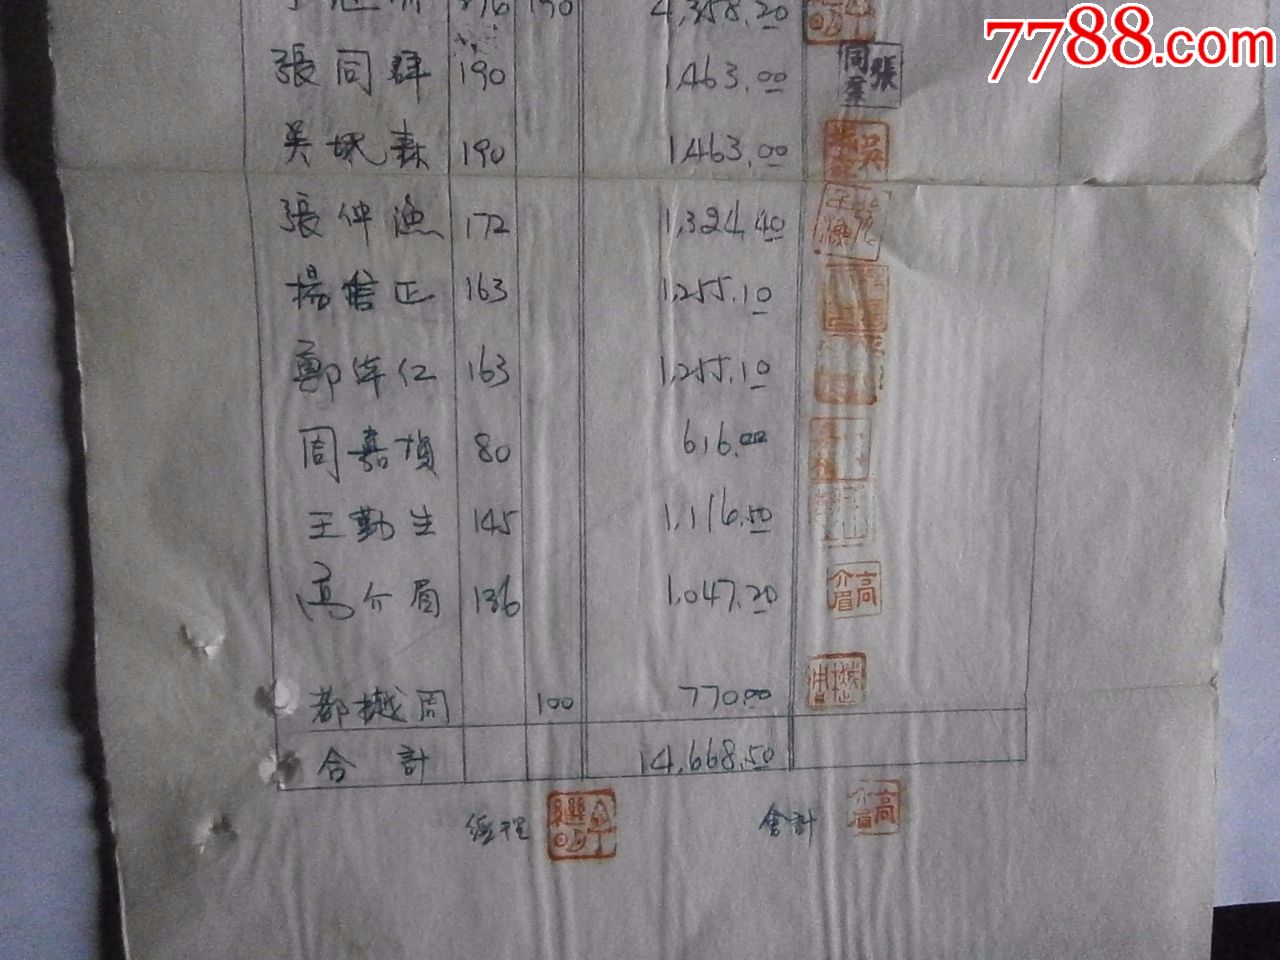 7788.com
190 4,358.20
張同群 190 1,463.00 張同羣
吳 森 190 1,463.00 吳
張仲漁 172 1,324.40
楊信正 163 1,255.10
鄭 仁 163 1,255.10
周嘉楨 80 616.00
王勤生 145 1,116.50
高介眉 136 1,047.20 高介眉
都樾周 100 770.00
合計 14,668.50
經理 會計 高介眉